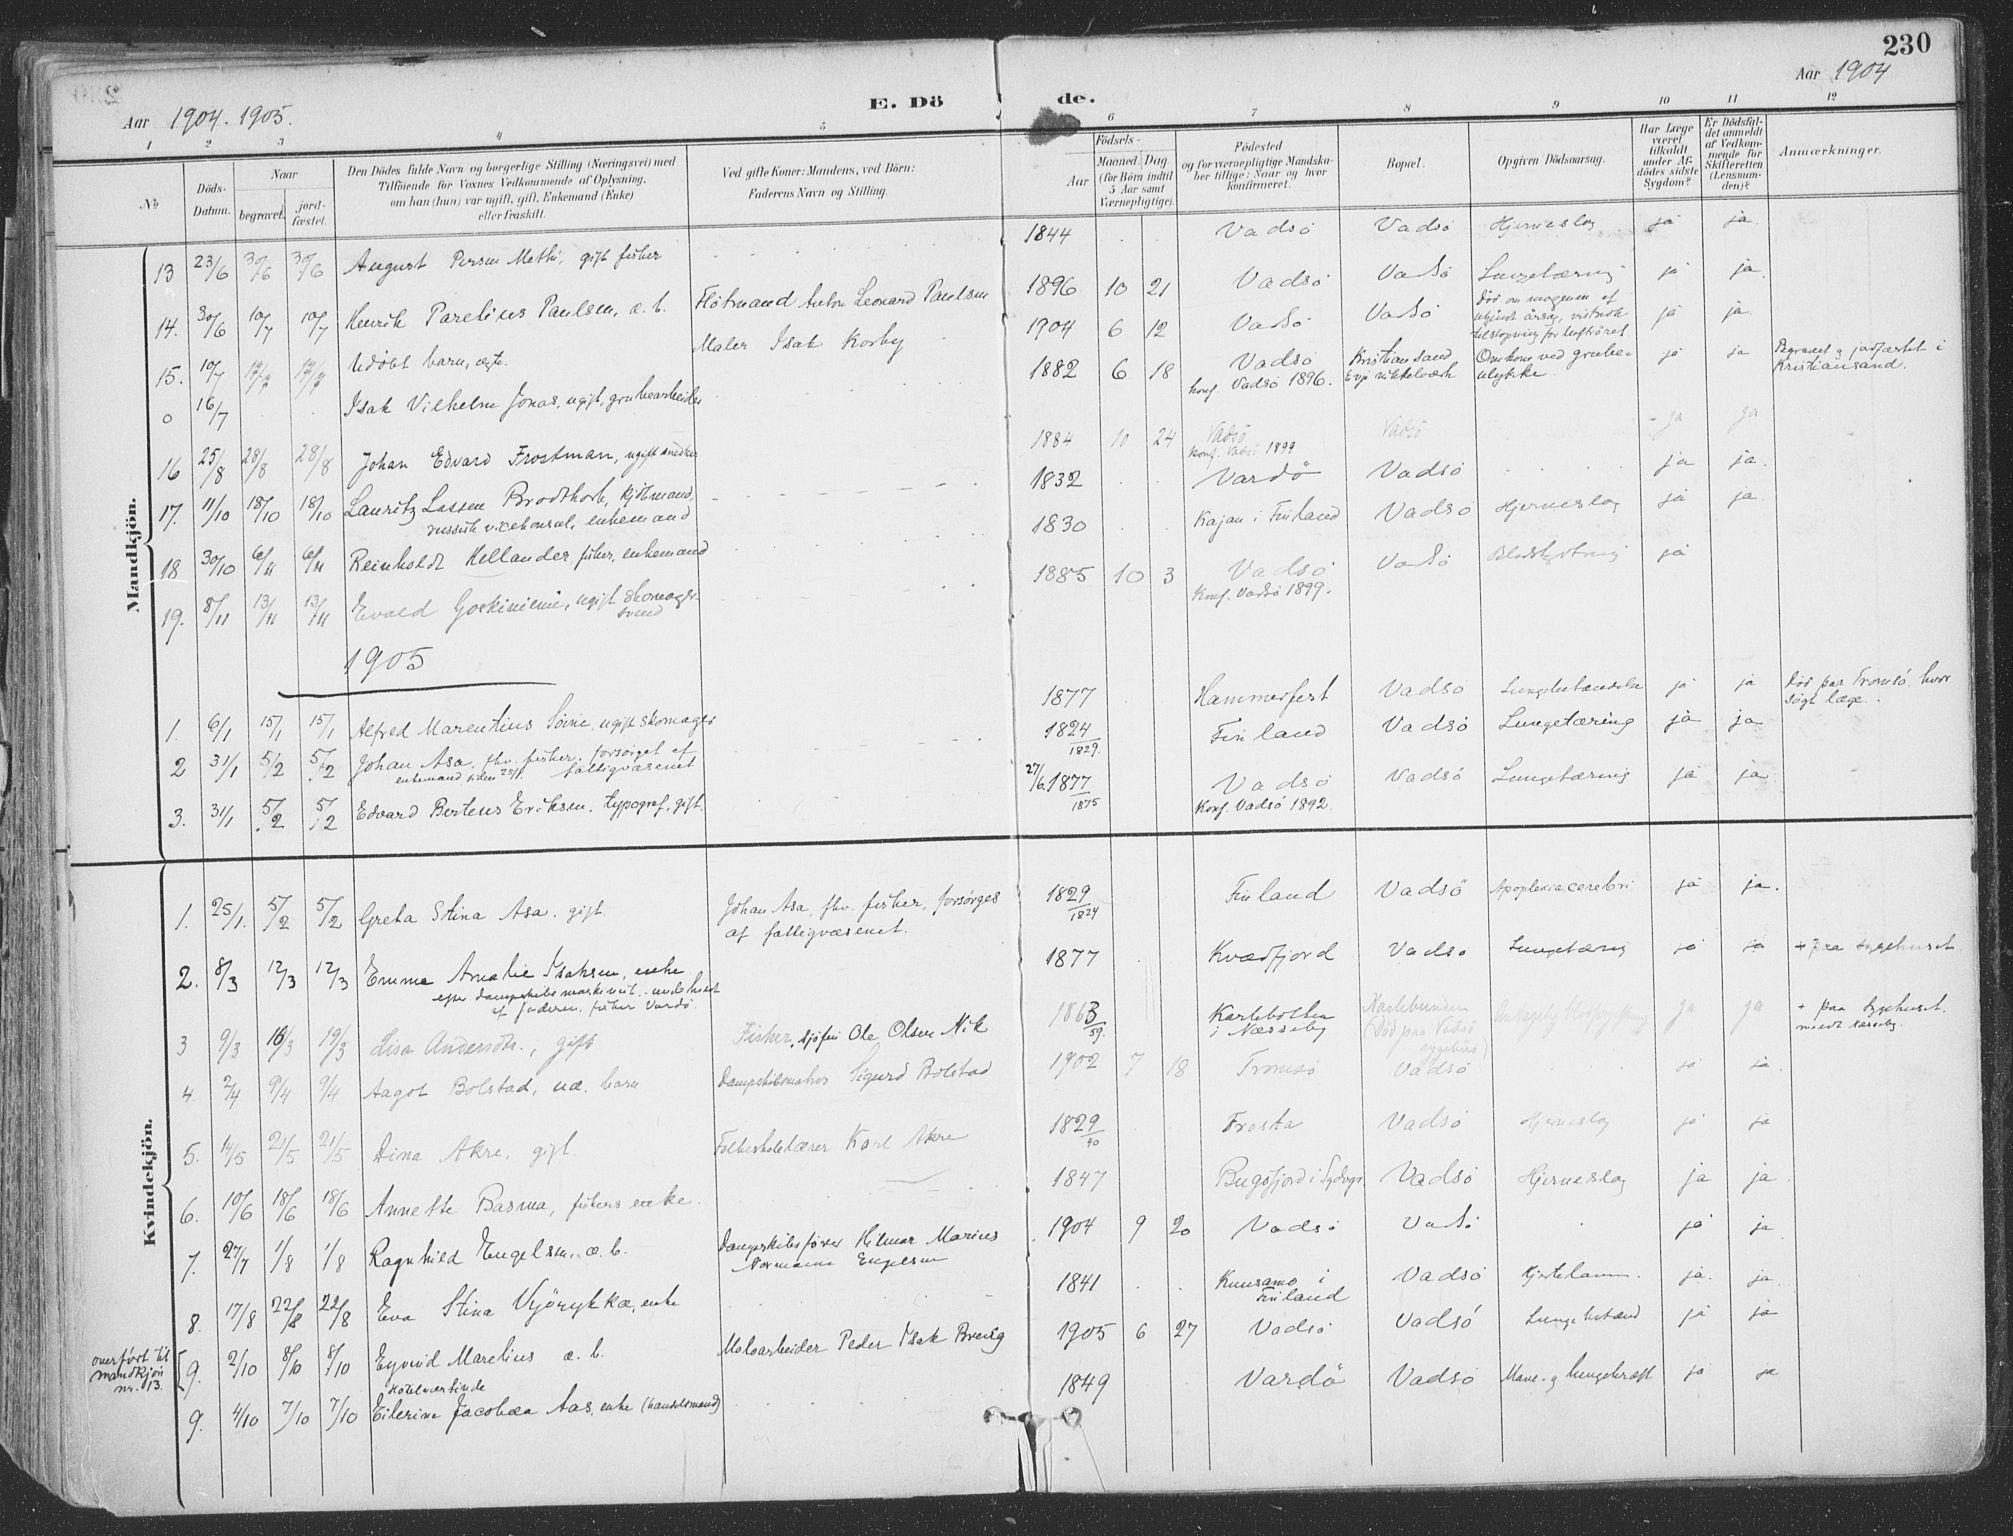 230
Aar 1904. 1905.
E. Dö de.
Aar 1904
1 2 3 4 5 6 7 8 9 10 11 12
No
Döds-Datum.
Naar
begravet.
jord-fæstet.
Den Dödes fulde Navn og borgerlige Stilling (Næringsvei) med
Tilföiende for Voxnes Vedkommende af Oplysning,
om han (hun) var ugift, gift, Enkemand (Enke)
eller fraskilt.
Ved gifte Koner: Mandens, ved Börn:
Faderens Navn og Stilling.
Födsels-
Aar
Maaned
Dag
(for Börn indtil
5 Aar samt
Værnepligtige).
Födested
og for værnepligtige Mandska-
ber tillige: Naar og hvor
konfirmeret.
Bopæl.
Opgiven Dödsaarsag.
Har Læge
været
tilkaldt
under Af-
dödes sidste
Sygdom?
Er Dödsfal-
det anmeldt
af Vedkom-
mende for
Skifteretten
(Lensman-
den)?
Anmærkninger.
Mandkjön.
13 23/6 30/6 30/6 August Persen Mathi, gift fisker 1844 Vadsö Vadsö Hjerneslag ja ja.
14. 30/6 10/7 10/7 Henrik Parelius Paulsen, æ. b. Flötmand Anton Leonard Paulsen 1896 10 21 Vadsö Vadsö Lungetæring ja ja.
15. 10/7 Udöbt barn, ægte. Maler Isak Korby 1904 6 12 Vadsö Vadsö
Död om morgenen af
ukjendt årsag, vistnok
tilstopning for luftröret. ja ja.
o 16/7 Isak Vilhelm Jonas, ugift, grubearbeider 1882 6 18 Vadsö
Konf. Vadsö 1896.
Kristiansand
Evje nikkelværk
Omkom ved grube-
ulykke. ja ja
Begravet & jordfæstet i
Kristiansand.
16 25/8 28/8 28/8 Johan Edvard Frostman, ugift snedker 1884 10 24 Vadsö
Konf. Vadsö 1899
Vadsö ja ja
17. 11/10 18/10 18/10 Lauritz Lassen Brodtkorb, kjöbmand,
russisk vicekonsul, enkemand 1832 Vardö Vadsö ja ja.
18 30/10 6/11 6/11 Reinholdt Hellander fisker, enkemand 1830 Kajan i Finland Vadsö Hjerneslag ja ja.
19. 8/11 13/11 13/11 Evald Goskiniemi, ugift skomager-
svend 1885 10 3 Vadsö
Konf. Vadsö 1899.
Vadsö Blodstyrtning ja
1905
1. 6/1 15/1 15/1 Alfred Marentius Soine, ugift skomager 1877 Hammerfest Vadsö Lungebetændelse ja ja
Död paa Tromsö hvor
sögt læge.
2 31/1 5/2 5/2 Johan Asa, fhv. fisker, forsörget af
enkemand siden 25/1. fattigvæsenet 1824
1829. Finland Vadsö Lungetæring ja ja
3. 31/1 5/2 5/2 Edvard Berteus Eriksen, typograf, gift. 27/6 1877
1875 Vadsö
Konf. Vadsö 1892.
Vadsö Lungetæring ja ja.
Kvindekjön.
1. 25/1. 5/2 5/2 Greta Stina Asa. gift. Johan Asa, fhv. fisker, forsörges
af fattigvæsenet. 1829
1824 Finland Vadsö Apoplexia cerebri ja ja.
2. 8/3 12/3 12/3 Emma Amalie Isaksen, enke
efter dampskibsmaskinist. underholdt
af faderen, fisker Vardö. 1877 Kvædfjord Vadsö Lungetæring ja ja + paa sygehuset.
3 9/3 19/3 Lisa Andersdtr., gift Fisker, sjöfin Ole Olsen Nik 1863
59. Karlebotten
i Næsseby
Karlebunden
(Död paa Vadsö
sygehus) ja ja + paa sygehuset,
meldt Næsseby.
4. 2/4 9/4 9/4 Aagot Bolstad, uæ. barn Dampskibsmatros Sigurd Bolstad 1902 7 18 Tromsö Vadsö ja ja.
5. 14/5 21/5 21/5 Dina Akre, gift Folkeskolelærer Karl Akre 1829
40 Frosta Vadsö Hjerneslag ja ja
6. 10/6 18/6 18/6 Annette Basma, fiskers enke. 1847 Bugöfjord i Sydvgr Vadsö Hjerneslag ja ja.
7. 27/7 1/8 1/8 Ragnhild Engelsen, æ. b. Dampskibsförer Hilmar Marius
Normann Engelsen 1904 9 20 Vadsö Vadsö ja ja
8. 17/8 22/8 22/8 Eva Stina Vyörykkæ, enke 1841 Kuusamo i
Finland Vadsö Hjertelam. ja. ja.
overfört til
mandkjön
nr. 13.
9. 2/10 8/10 8/10 Eyvind Marelius æ. b. Moloarbeider Peder Isak Brevig 1905 6 27 Vadsö Vadsö Lungebetænd ja ja
9. 4/10 7/10 7/10 Hotelværtinde
Eilerine Jacobæa Aas, enke (handelsmand) 1849 Vardö Vadsö Mave- og lungekræft ja ja